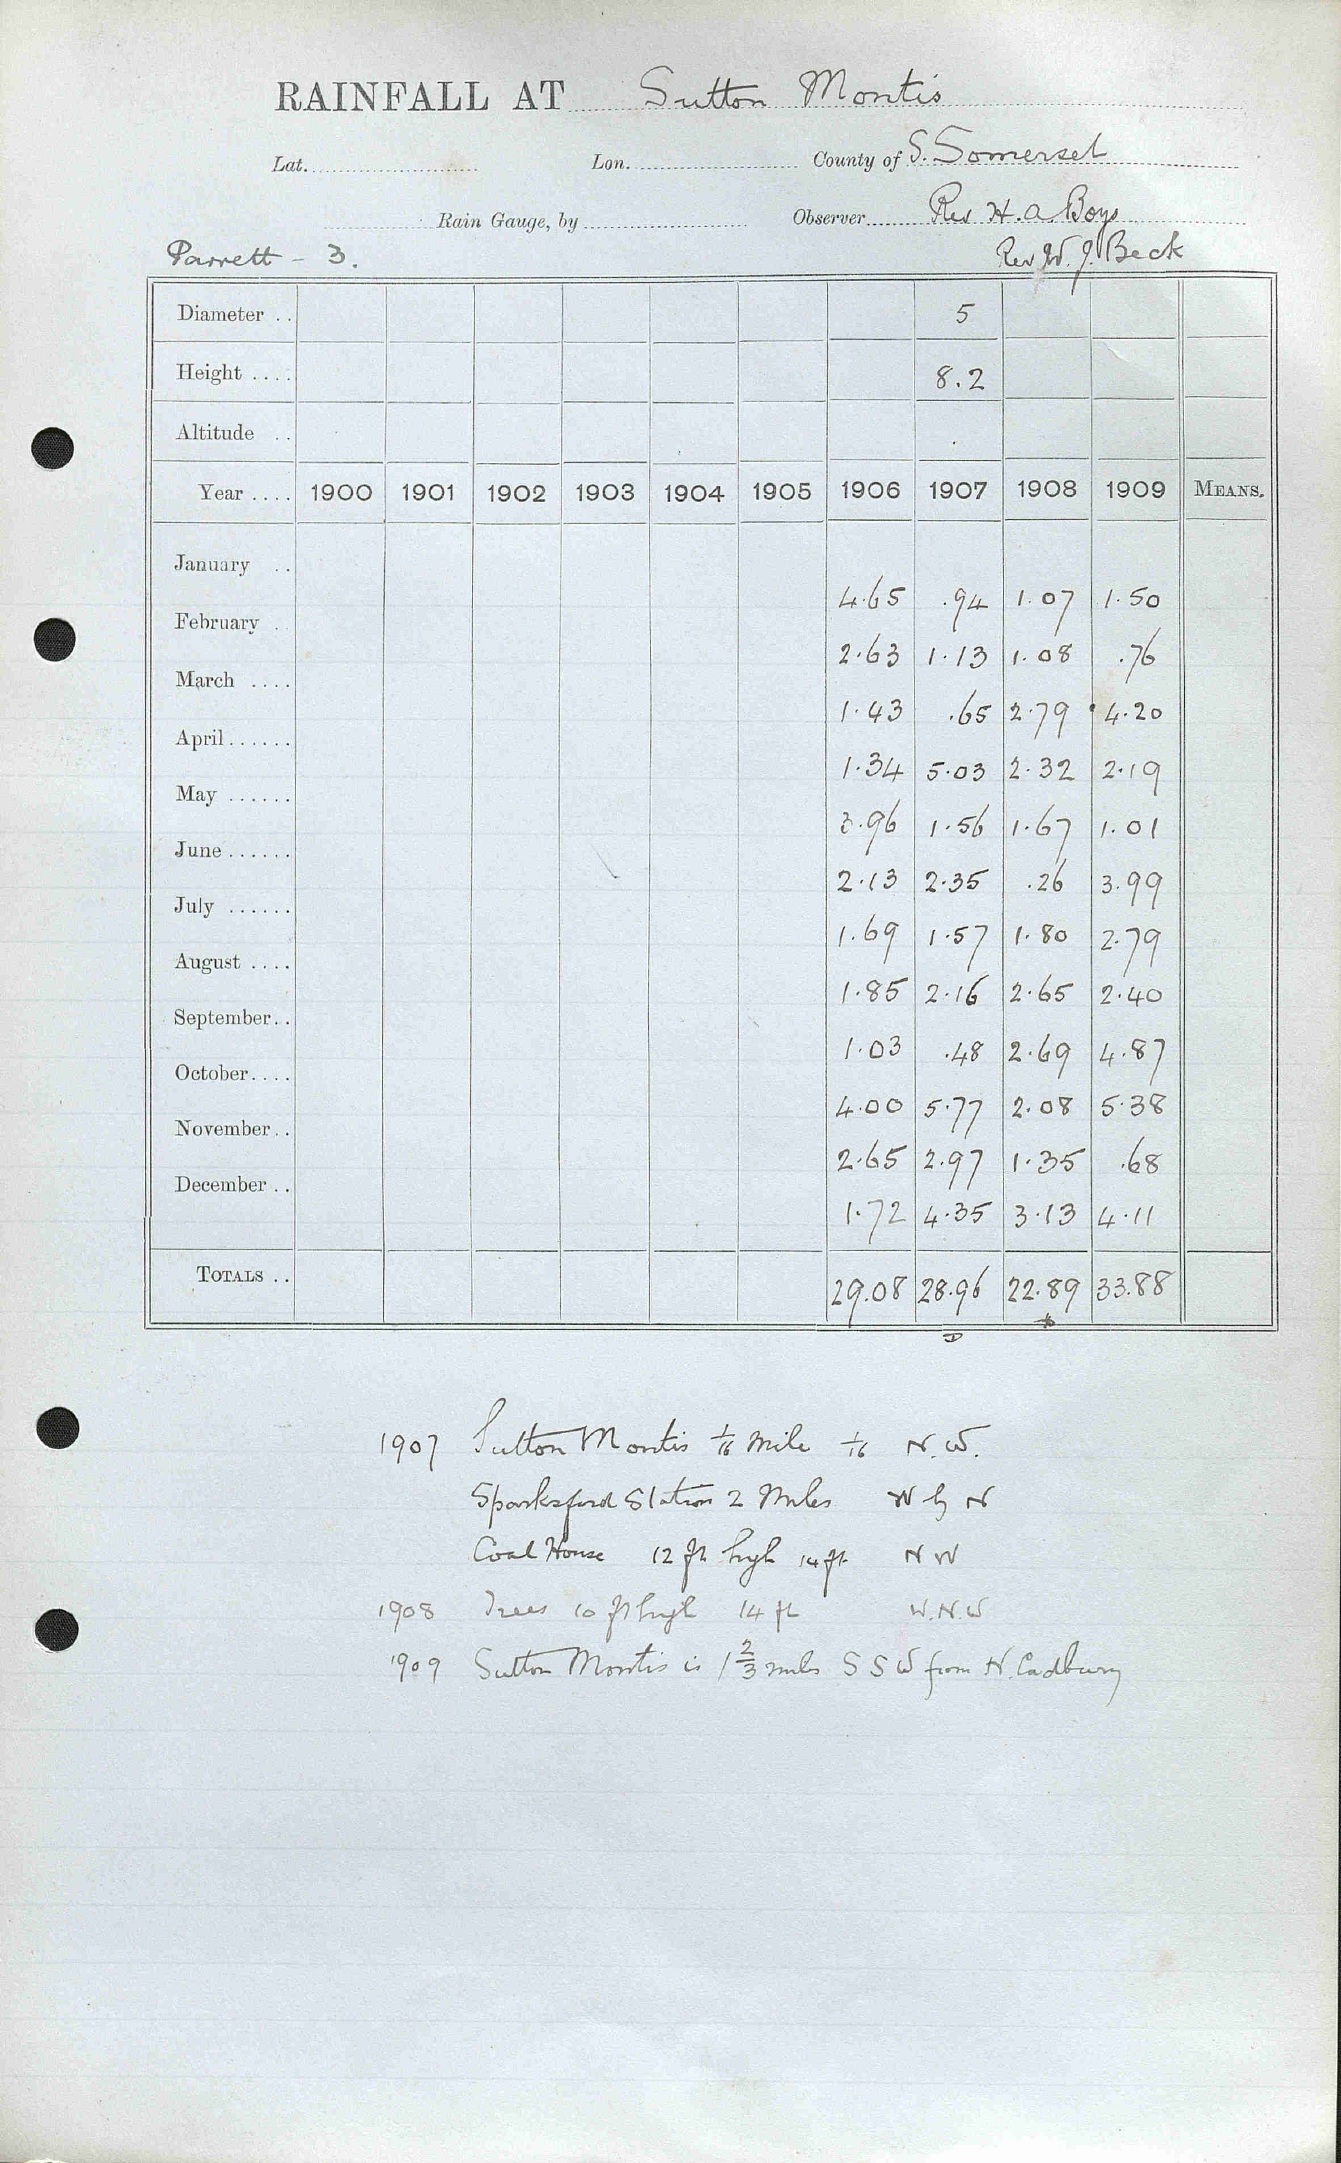 RAINFALL AT Sutton Montis
Lat. Lon. County of S. Somerset
Rain Gauge, by Observer Rev H. A. Boys
Parrett - 3. Rev W. J. Beck
Diameter .. 5
Height .... 8.2
Altitude ..
Year .... 1900 1901 1902 1903 1904 1905 1906 1907 1908 1909 MEANS.
January .. 4.65 .94 1.07 1.50
February . 2.63 1.13 1.08 .76
March .... 1.43 .65 2.79 4.20
April...... 1.34 5.03 2.32 2.19
May ...... 3.96 1.56 1.67 1.01
June...... 2.13 2.35 .26 3.99
July ...... 1.69 1.57 1.80 2.79
August .... 1.85 2.16 2.65 2.40
September.. 1.03 .48 2.69 4.87
October.... 4.00 5.77 2.08 5.38
November.. 2.65 2.97 1.35 .68
December .. 1.72 4.35 3.13 4.11
TOTALS .. 29.08 28.96 22.89 33.88
1907 Sutton Montis 1/16 mile 1/16 N.W.
Sparksford Station 2 Miles W by N
Coal House 12 ft high 14 ft N W
1908 Trees 10 ft high 14 ft W.N.W
1909 Sutton Montis is 1 2/3 miles S S W from N. Cadbury